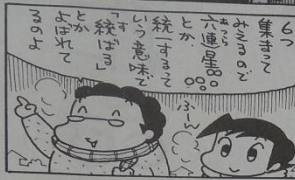 6つ
集まって
みえるので
六連星
むつら
とか、
統一するって
いう意味で
「統ばる」
す
とか
よばれて
るのよ
ふーん